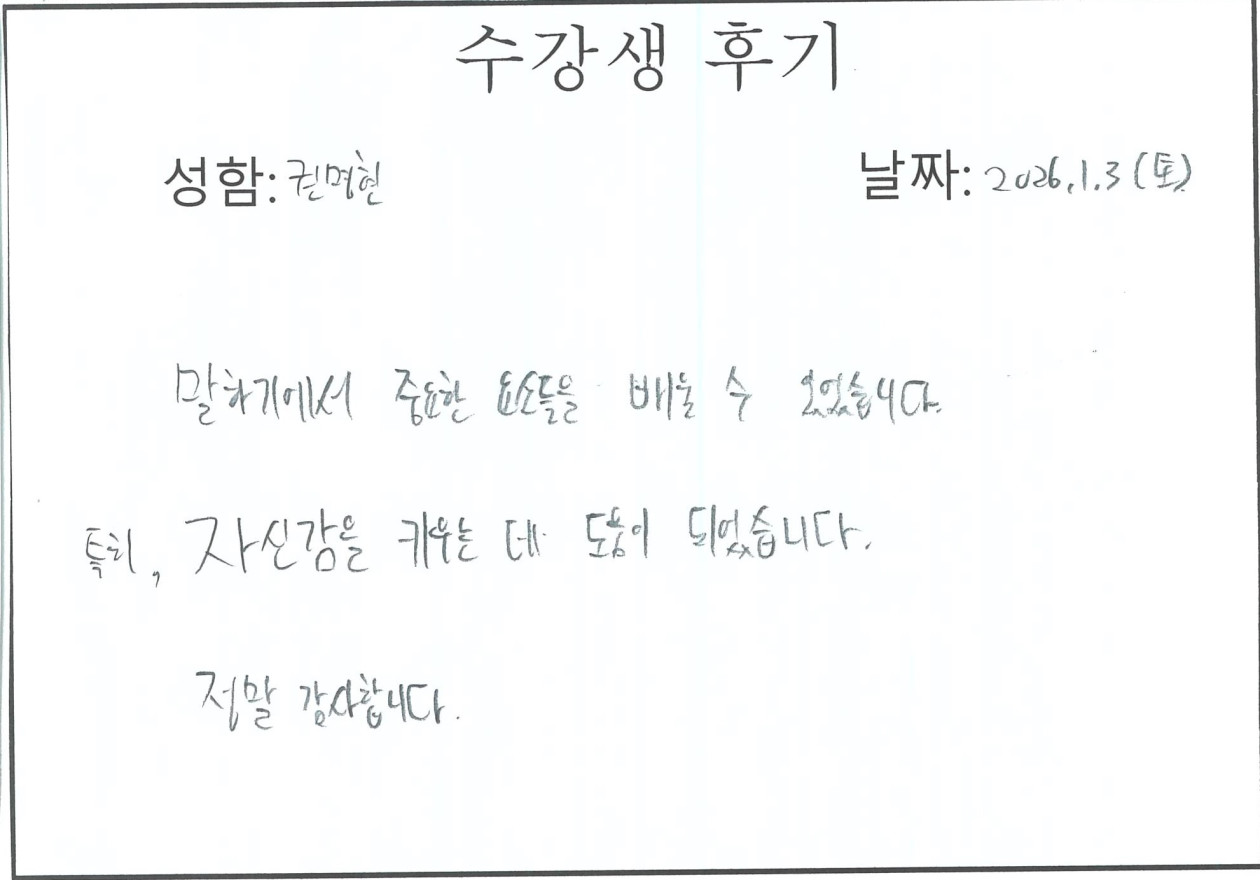 수강생 후기
성함: 권명현
날짜: 2026.1.3 (토)
말하기에서 중요한 요소들을 배울 수 있었습니다.
특히, 자신감을 키우는 데 도움이 되었습니다.
정말 감사합니다.